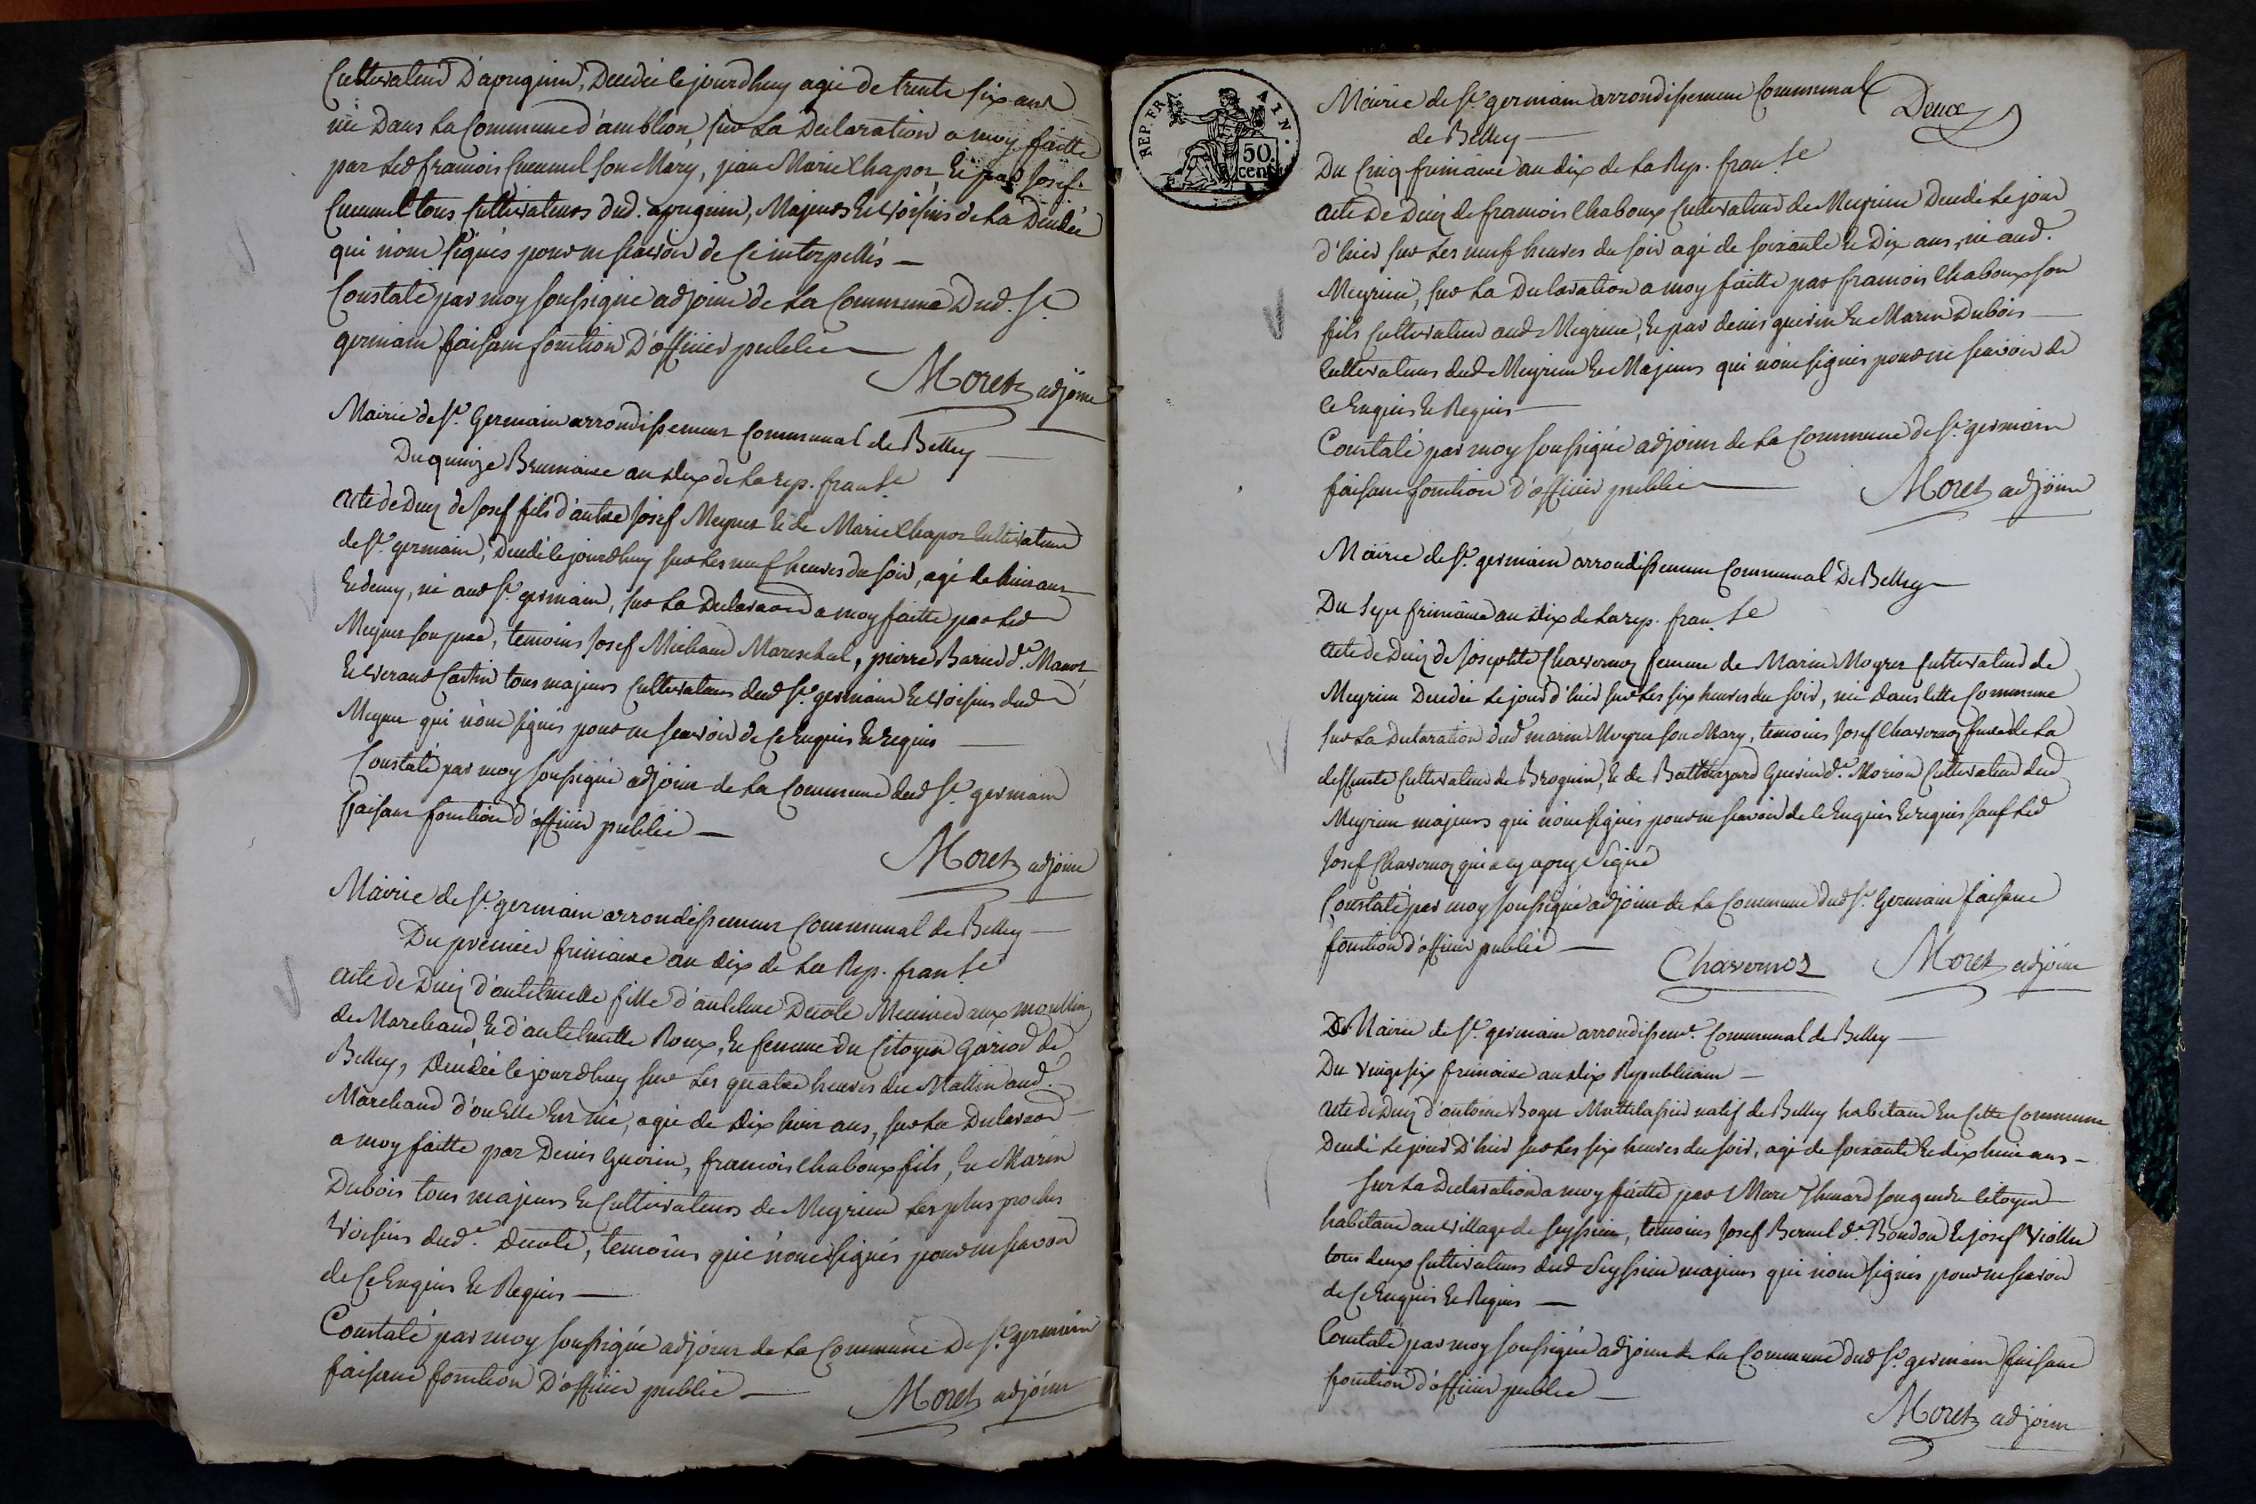 Cultivateur D'apreguin, Decedée le jourdhuy agée de trente six ans
née Dans La Commune d'ambléon, sur La Declaration a moy faitte
par led françois Cuenmel son Mary, jean Marie Chapot, Et par Josef
Cuenmel tous Cultivateurs dud. apreguin, Majeurs Et voisins de La Decedée
qui n'ont signés pour ne scavoir de Ce interpellés —
Constaté par moy soussigné adjoint de La Commune Dud. St
germain faisant fonction D'officier publie
Moret adjoint
Mairie de St. Germain arrondissement Communal de Belley —
Du quinze Brumaire an dix de La rep. franse
acte de Decez de Josef fils d'autre Josef Meynet Et de Marie Chapot Cultivateurs
de St. germain, Decedé le jourdhuy sur Les neuf heures du soir, agé de huit ans
Et demy, né aud St. germain, sur La Declaraon a moy faitte par Led
Meynet son pere, temoins Josef Michaud Mareschal, pierre Baried d. Manot
Et verand Castin tous majeurs Cultivateurs dud St. germain Et voisins dud
Meynet qui n'ont signés pour ne scavoir de Ce Enquis Et requis —
Constaté par moy soussigné adjoint de La Commune dud St. germain
faisant fonction d'officier publie —
Moret adjoint
Mairie de St. germain arrondissement Communal de Belley —
Du premier frimaire an dix de La Rep. franse
acte de Decez d'antelmette fille d'antelme Decole Meunier aux moullin
de Marchand Et d'antelmette Roux, Et femme du Citoyen Gariod de
Belley, Decedée le jourdhuy sur Les quatre heures du Mattin aud.
Marchand d'ou Elle Est née, agée de Dix huit ans, sur La Declaraon
a moy faitte par Denis Guerin, françois Chaboux fils, Et Marin
Dubois tous majeurs Et Cultivateurs de Meyrieu Les plus proches
voisins dud. Decole, temoins qui n'ont signés pour ne scavoir
de Ce Enquis Et Requis —
Constaté par moy soussigné adjoint de La Commune De St. germain
faisant fonction D'officier publie —
Moret adjoint
REP. FRA. AIN.
50 cent
Deux
Mairie de St. germain arrondissement Communal
de Belley —
Du Cinq frimaire an dix de La Rep. franse
acte De Decez de françois Chaboux Cultivateur de Meyrieu Decedé Le jour
d'hier sur Les neuf heures du soir agé de soixante Et Dix ans, né aud.
Meyrieu, sur La Declaration a moy faitte par françois Chaboux son
fils Cultivateur aud Meyrieu, Et par denis guerin Et Marin Dubois —
Cultivateurs dud Meyrieu Et Majeurs qui n'ont signés pour ne scavoir de
Ce Enquis Et Requis —
Constaté par moy soussigné adjoint de La Commune de St. germain
faisant fonction d'officier publie —
Moret adjoint
Mairie de St. germain arrondissement Communal De Belley —
Du sept frimaire an dix de La rep. franse
acte de Decez de Josephte Chavernoz femme de Marin Moyret Cultivateur de
Meyrieu Decedée Le jour d'hier sur Les six heures du soir, née dans Cette Commune
sur La Declaration dud marin Moyret son Mary, temoins Josef Chavernoz frere de La
deffunte Cultivateur de Brognin, Et de Balthazard Guerin d. Morion Cultivateur dud
Meyrieu majeurs qui n'ont signés pour ne scavoir de Ce Enquis Et requis sauf Led
Josef Chavernoz qui a cy apres Signé
Constaté par moy soussigné adjoint de La Commune dud St. Germain faisant
fonction d'officier publie —
Chavernoz Moret adjoint
Mairie de St. germain arrondissemt. Communal de Belley —
Du vingt six frimaire an dix Republicain —
acte de Decez d'antoine Boget Mattelassier natif de Belley habitant En Cette Commune
Decedé Le jour D'hier sur Les six heures du soir, agé de soixante Et dix huit ans —
sur La Declaration a moy faitte par Marc Thenard son gendre Citoyen
habitant au village de Seyssieu, temoins Josef Bernel d. Boudon Et Josef Viollet
tous deux Cultivateurs dud Seyssieu majeurs qui n'ont signés pour ne scavoir
de Ce Enquis Et Requis —
Constaté par moy soussigné adjoint de La Commune dud St. germain faisant
fonction d'officier publie —
Moret adjoint